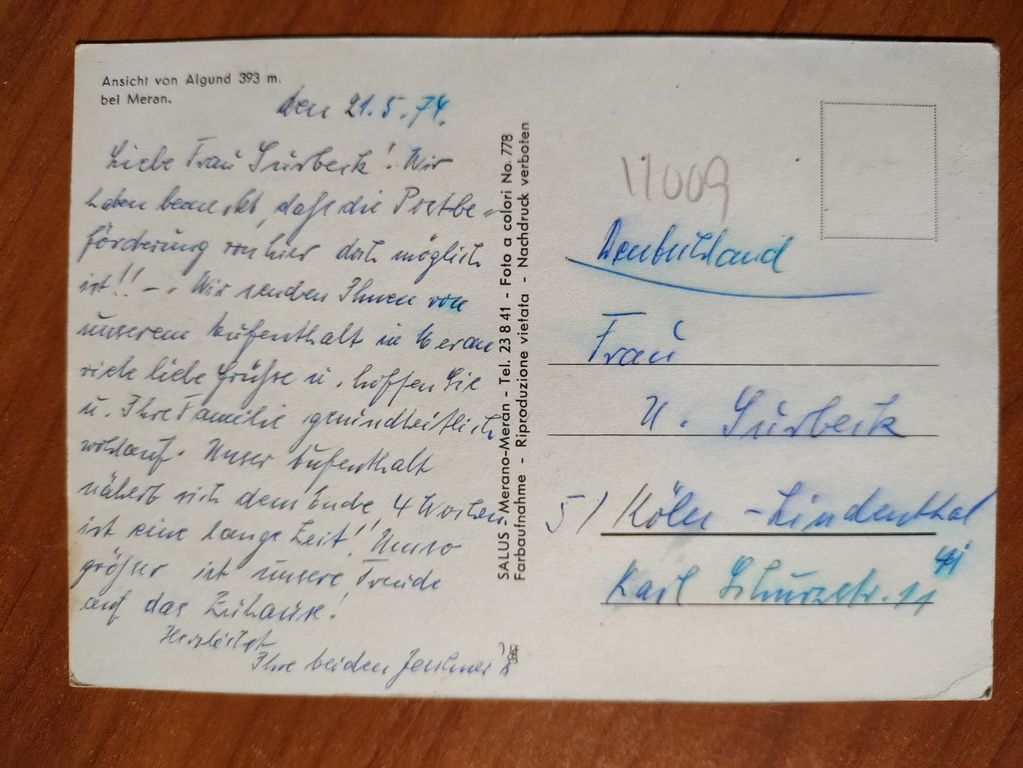 Ansicht von Algund 393 m.
bei Meran.
den 21.5.74.
Liebe Frau Surbeck! Wir
haben bemerkt, daß die Postbe-
förderung von hier doch möglich
ist!! -. Wir senden Ihnen von
unserem Aufenthalt in Meran
viele liebe Grüße u. hoffen Sie
u. Ihre Familie gesundheitlich
wohlauf. Unser Aufenthalt
nähert sich dem Ende 4 Wochen
ist eine lange Zeit! Umso
größer ist unsere Freude
auf das Zuhause!
Herzlichst
Ihre beiden
SALUS Merano-Meran - Tel. 23 8 41 - Foto a colori No. 778
Farbaufnahme - Riproduzione vietata - Nachdruck verboten
17009
Deutschland
Frau
U. Surbeck
51 Köln-Lindenthal
41
Karl Schurzstr. 11